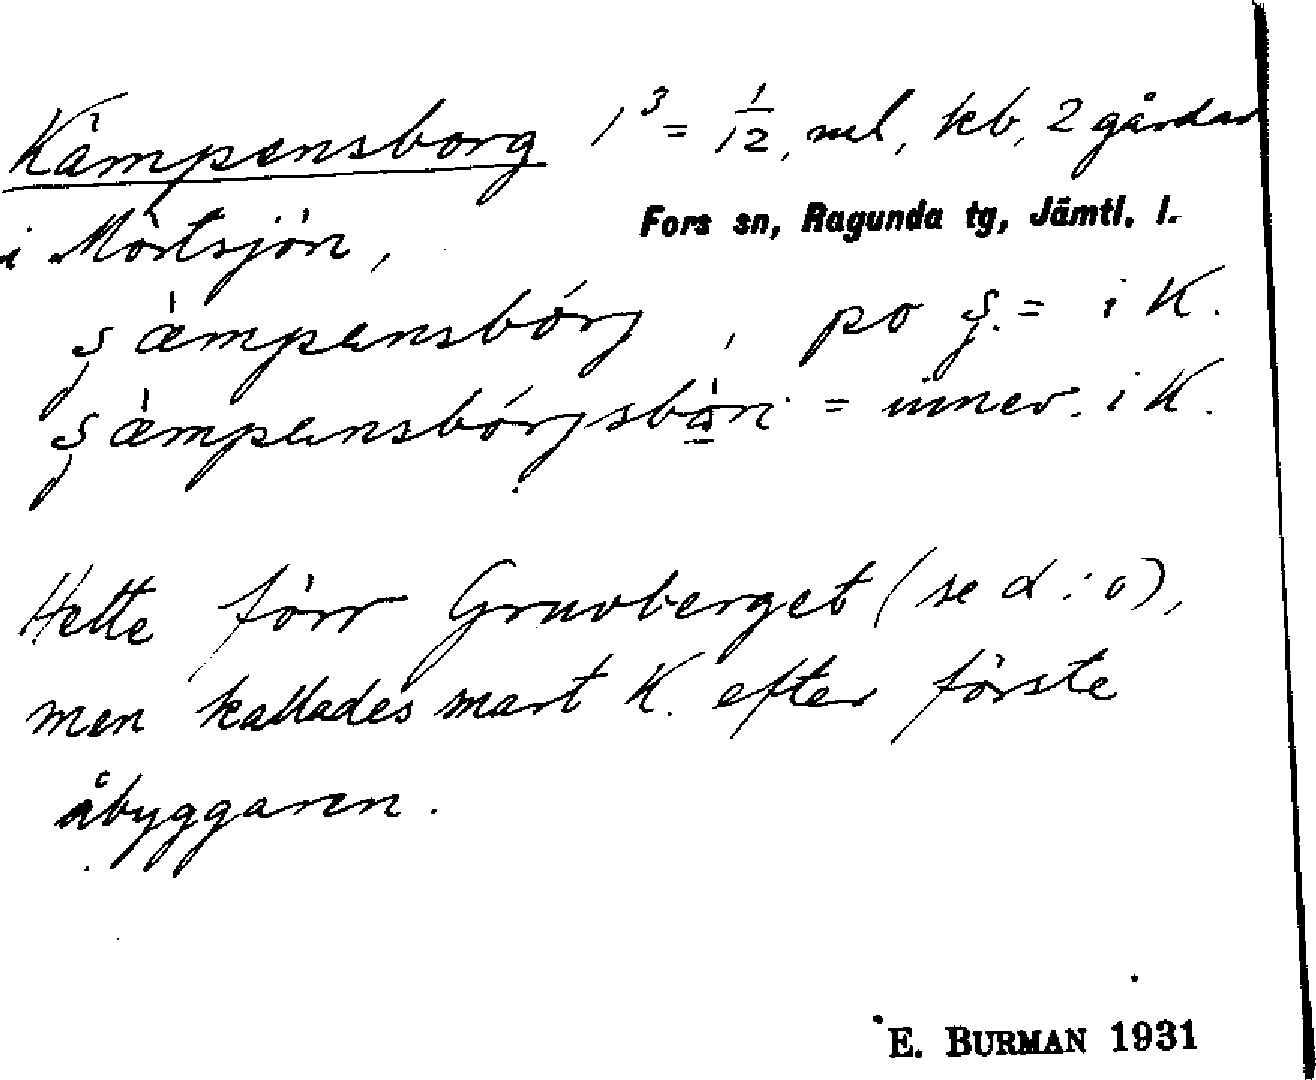 Kämpensborg 1³ = 1/12, ml, kb, 2 gårdar
Fors sn, Ragunda tg, Jämtl. l.
i Mörtsjön,
ʂæ̀mpensbórj, po ʂ. = i K.
ʂæ̀mpensbórjsbàri = innev. i K.
Hette förr Gruvberget (se d : o),
men kallades snart K. efter förste
åbyggaren.
E. BURMAN 1931